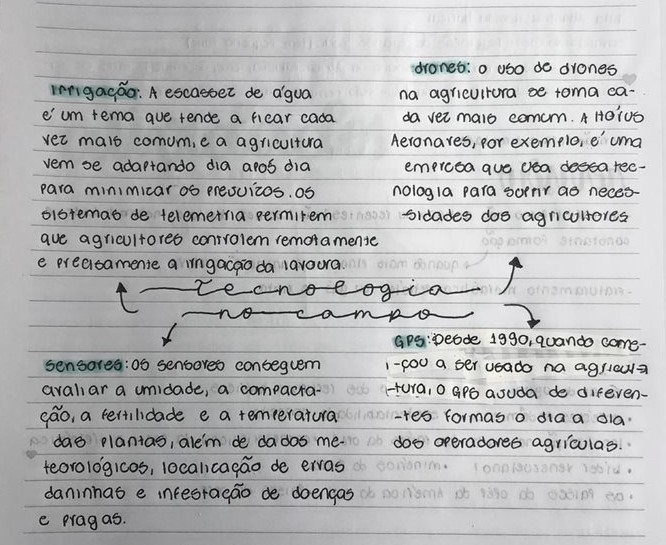 irrigação: A escassez de água
é um tema que tende a ficar cada
vez mais comum, e a agricultura
vem se adaptando dia após dia
para minimizar os prejuízos. os
sistemas de telemetria permitem
que agricultores controlem remotamente
e precisamente a irrigação da lavoura.
drones: o uso de drones
na agricultura se torna ca-
da vez mais comum. A Hórus
Aeronaves, por exemplo, é uma
empresa que usa dessa tec-
nologia para suprir as neces-
-sidades dos agricultores
tecnologia
no campo
sensores: os sensores conseguem
avaliar a umidade, a compacta-
ção, a fertilidade e a temperatura
das plantas, além de dados me-
teorológicos, localização de ervas
daninhas e infestação de doenças
e pragas.
GPS: Desde 1990, quando come-
-çou a ser usado na agricul
-tura, o GPS ajuda de diferen-
-tes formas o dia a dia
dos operadores agrículas.